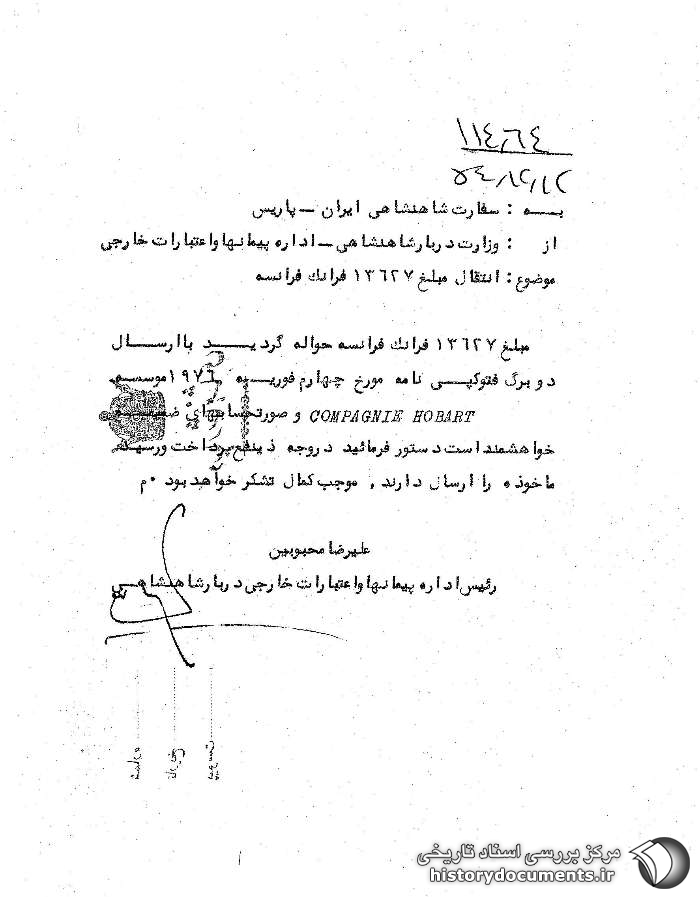 ۱۱۴٫۶۴
۵۴٫۱۲٫۱۲
به : سفارت شاهنشاهی ایران – پاریس
از : وزارت دربار شاهنشاهی – اداره پیمانها و اعتبارات خارجی
موضوع : انتقال مبلغ ۱۳۶۲۷ فرانك فرانسه
مبلغ ۱۳۶۲۷ فرانك فرانسه حواله گردید با ارسال
دو برگ فتوکپی نامه مورخ چهارم فوریه ۱۹۷۶ موسسه
COMPAGNIE HOBART و صورتحسابهای ضمیمه
خواهشمند است دستور فرمائید در وجه ذینفع پرداخت و رسید
ماخوذه را ارسال دارند . موجب کمال تشکر خواهد بود . م
علیرضا محبوبین
رئیس اداره پیمانها و اعتبارات خارجی دربار شاهنشاهی
مرکز بررسی اسناد تاریخی
historydocuments.ir